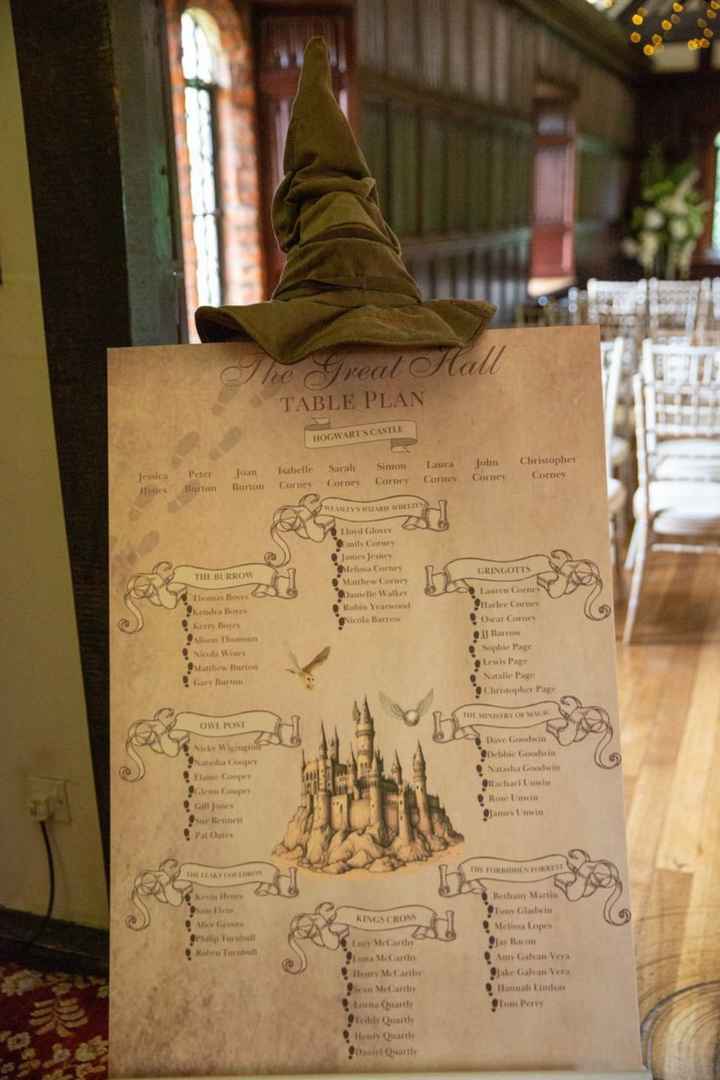 The Great Hall
TABLE PLAN
HOGWART'S CASTLE
Jessica Peter Joan Isabelle Sarah Simon Laura John Christopher
Burton Burton Corney Corney Corney Corney Corney Corney
WEASLEY'S WIZARD WHEEZES
Lloyd Glover
Emily Corney
James Jesney
Melissa Corney
Matthew Corney
Danielle Walker
Robin Yearwood
Nicola Barrow
THE BURROW
Thomas Boyes
Kendra Boyes
Kerry Boyes
Alison Thomson
Nicola
Matthew Burton
Gary Burton
GRINGOTTS
Lauren Corney
Harlee Corney
Oscar Corney
JJ Barrow
Sophie Page
Lewis Page
Natalie Page
Christopher Page
OWL POST
Nicky Wigington
Natasha Cooper
Elaine Cooper
Glenn Cooper
Gill Jones
Sue Bennett
Pat Oates
THE MINISTRY OF MAGIC
Dave Goodwin
Debbie Goodwin
Natasha Goodwin
Rachael Unwin
Rose Unwin
James Unwin
THE LEAKY CAULDRON
Kevin
Sam
Alice
Philip Turnbull
Robyn Turnbull
THE FORBIDDEN FORREST
Bethany Martin
Tony Gladwin
Melissa Lopes
Jay Bacon
Amy Galvan-Vera
Jake Galvan-Vera
Hannah Lindsay
Tom Perry
KINGS CROSS
Lucy McCarthy
Luna McCarthy
Henry McCarthy
Sean McCarthy
Lorna Quartly
Teibly Quartly
Henry Quartly
Daniel Quartly